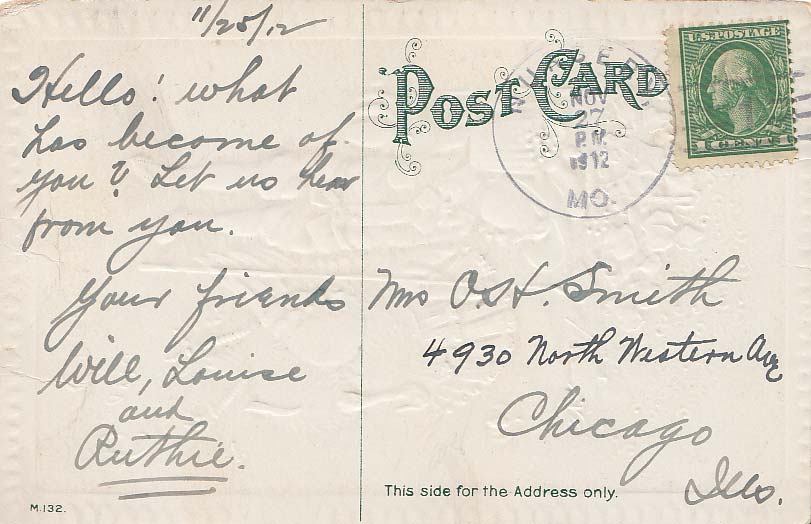 11/25/12
Hello! what
has become of
you? Let us hear
from you.
Your friends
Will, Louise
and
Ruthie.
M.132.
POST CARD
NOV
27
P.M.
1912
MO.
U.S. POSTAGE
1 CENT 1
Mrs O.H. Smith
4930 North Western Ave
Chicago
Ills.
This side for the Address only.